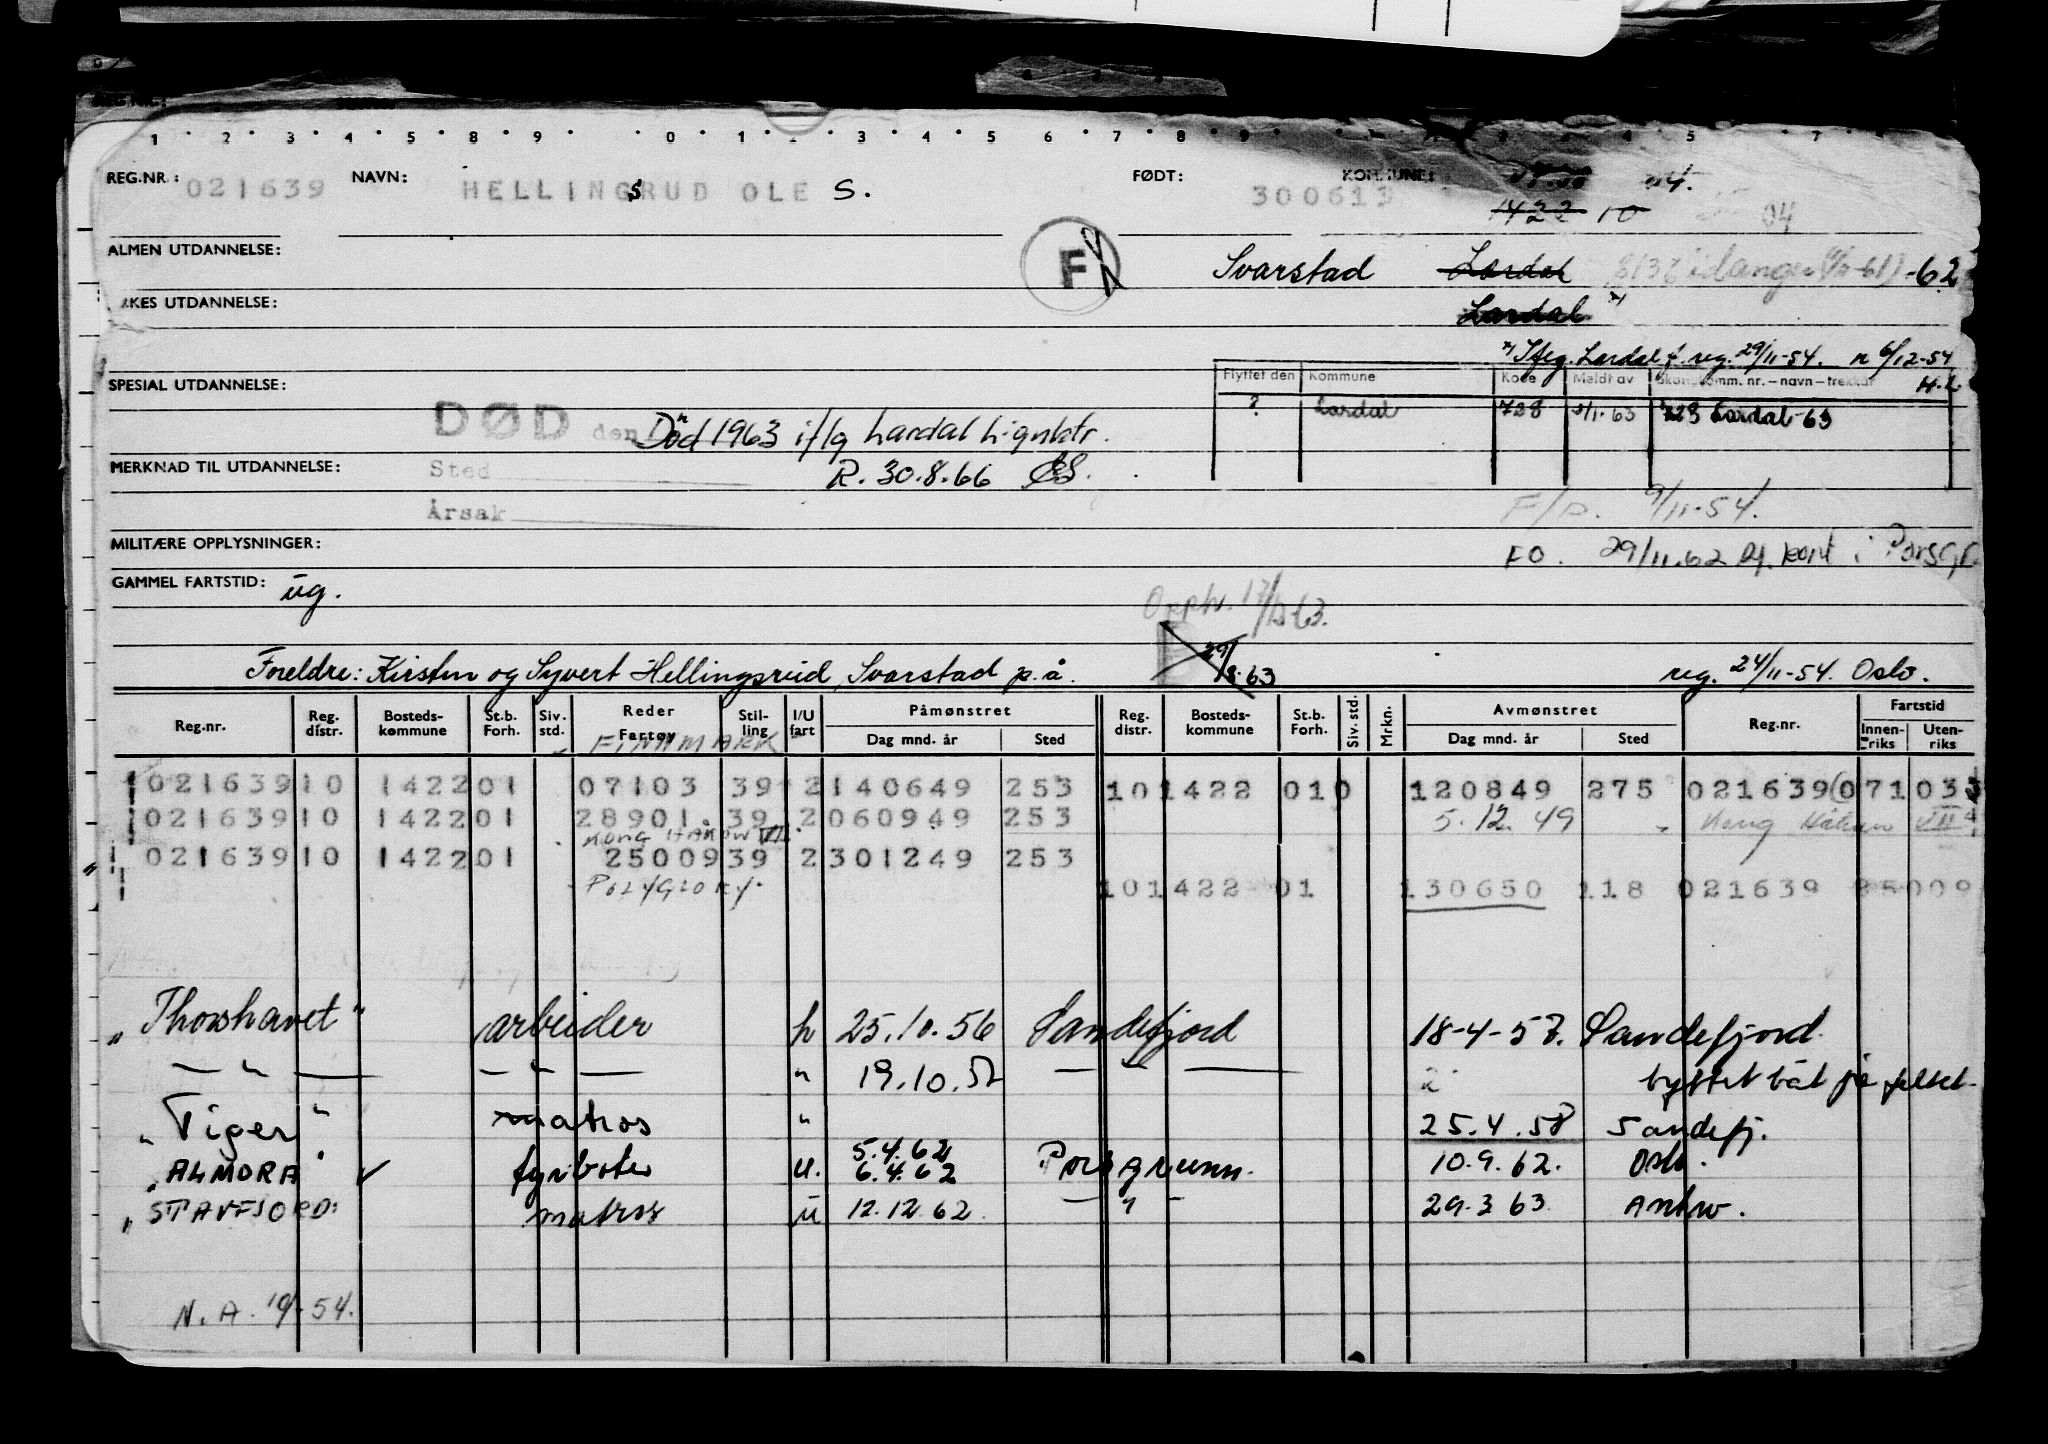 1 2 3 4 5 8 9 0 1 3 4 5 6 7 8 9 4 5 7
REG.NR.: 021639 NAVN: HELLINGSRUD OLE S. FØDT: 300613 KOMMUNE: 04.
1422 10 04
ALMEN UTDANNELSE: F Svarstad Lardal -62
RKES UTDANNELSE: Lardal x)
x) Ifeg. Lardal f. reg. 29/11-54. n 6/12-54
SPESIAL UTDANNELSE: Flyttet den Kommune Kode Meldt av H.L.
? Lardal 728 3/1-63 728 Lardal-63
DØD den Død 1963 iflg Lardal Lignktr.
MERKNAD TIL UTDANNELSE: Sted R. 30.8.66
Årsak F/D. 9/11-54.
MILITÆRE OPPLYSNINGER: FO. 29/11.62 Mj. kont i Porsgr.
GAMMEL FARTSTID: ug.
Opph. 17/12-63.
29/8.63
Foreldre: Kirsten og Syvert Hellingsrud, Svarstad p.å. reg. 24/11-54. Oslo.
Reg.nr. Reg. distr. Bosteds- kommune St.b. Forh. Siv. std. Reder Fartøy Stil- ling I/U fart Påmønstret Dag mnd. år Sted Reg. distr. Bosteds- kommune St.b. Forh. Siv. std. Mrkn. Avmønstret Dag mnd. år Sted Reg.nr. Fartstid Innen- riks Uten- riks
FINNMARK
021639 10 1422 01 07103 39 2 140649 253 10 1422 01 0 120849 275 021639 0 71 03
021639 10 1422 01 28901 39 2 060949 253 5.12.49 Kong Håkon VII
KONG HAKON VII
021639 10 1422 01 25009 39 2 301249 253
POLYGLORY 10 1422 01 130650 118 021639 25009
"Thorshavet" arbeider h 25.10.56 Sandefjord 18-4-57. Sandefjord.
— " — — " — " 19.10.57 — " — byttet båt på feltet.
"Tiger" matros " 25.4.58 Sandefj.
5.4.62
"ALMORA" ✓ fyrbøter u. 6.4.62 Porsgrunn. 10.9.62. Oslo.
"STAVFJORD" matros u 12.12.62 — " — 29.3 63 Antw.
N.A. 19/-54.